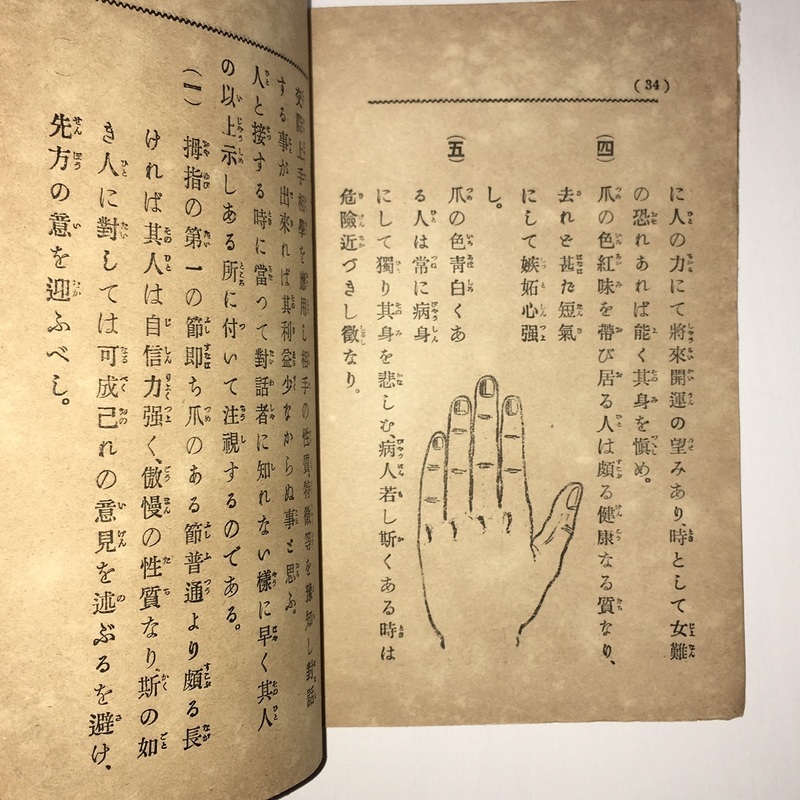 (34)
に人の力にて將來開運の望みあり、時として女難
の恐れあれば能く其身を愼め。
(四) 爪の色紅味を帶び居る人は頗る健康なる質なり、
去れど甚だ短氣
にして嫉妬心强
し。
(五) 爪の色靑白くあ
る人は常に病身
にして獨り其身を悲しむ、病人若し斯くある時は
危險近づきし徵なり。
交際上手相學を應用し相手の性質特徵等を豫知し對話
する事が出來れば其利益少なからぬ事と思ふ。
人と接する時に當つて對話者に知れない樣に早く其人
の以上示しある所に付いて注視するのである。
(一) 拇指の第一の節卽ち爪のある節普通より頗る長
ければ其人は自信力强く、傲慢の性質なり、斯の如
き人に對しては可成己れの意見を述ぶるを避け、
先方の意を迎ふべし。